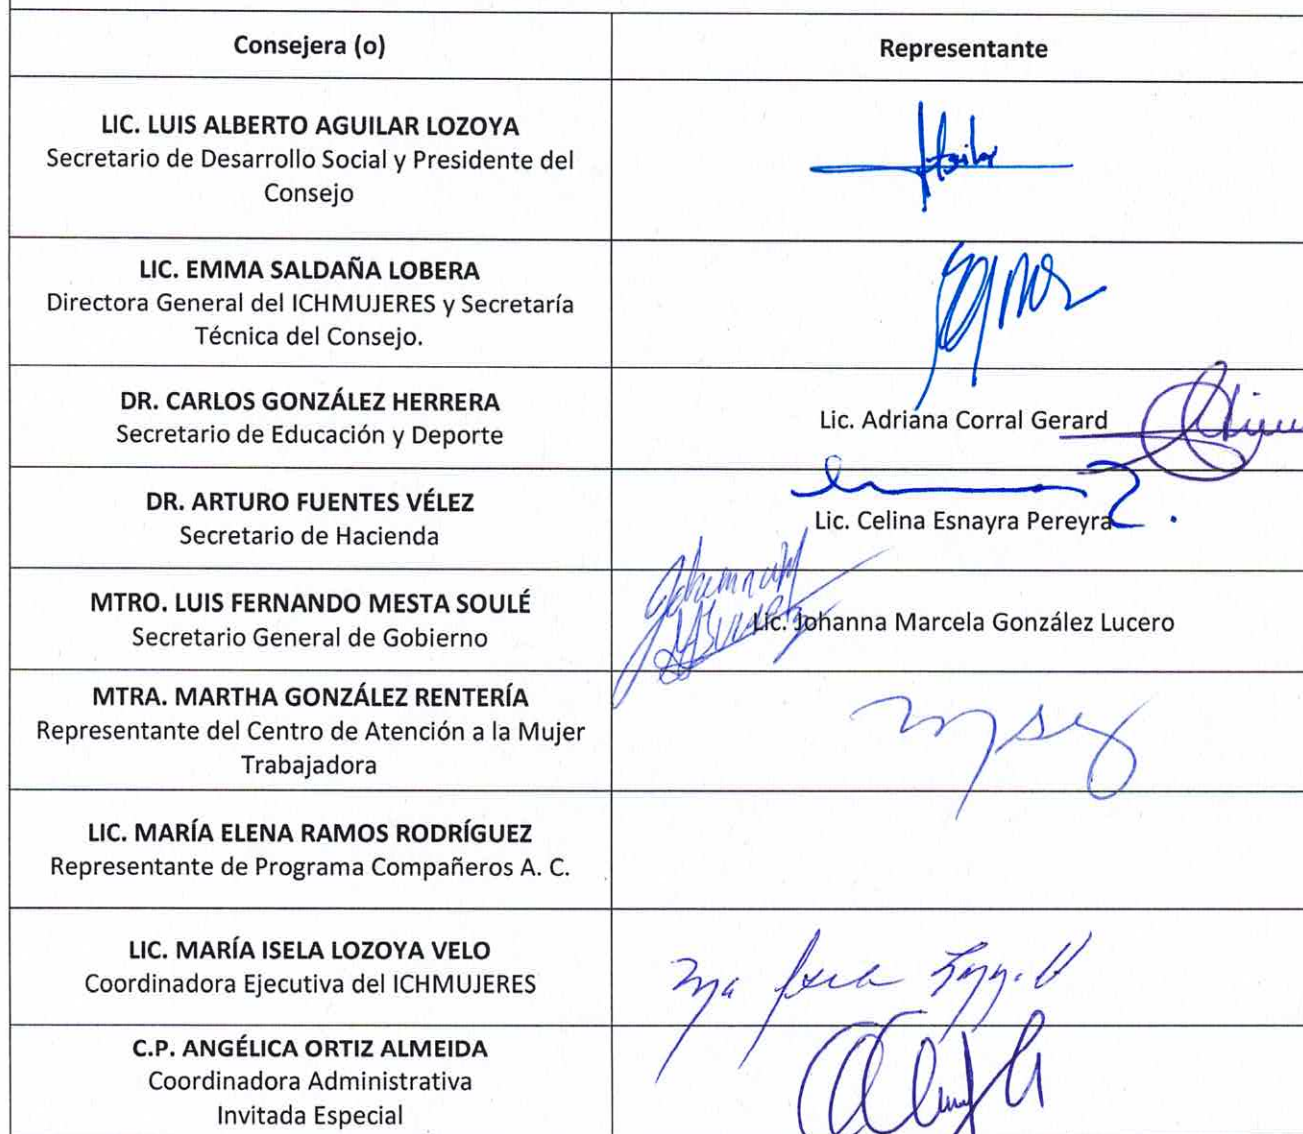 Consejera (o)
Representante
LIC. LUIS ALBERTO AGUILAR LOZOYA
Secretario de Desarrollo Social y Presidente del
Consejo
LIC. EMMA SALDAÑA LOBERA
Directora General del ICHMUJERES y Secretaría
Técnica del Consejo.
DR. CARLOS GONZÁLEZ HERRERA
Secretario de Educación y Deporte
Lic. Adriana Corral Gerard
DR. ARTURO FUENTES VÉLEZ
Secretario de Hacienda
Lic. Celina Esnayra Pereyra
MTRO. LUIS FERNANDO MESTA SOULÉ
Secretario General de Gobierno
Lic. Johanna Marcela González Lucero
MTRA. MARTHA GONZÁLEZ RENTERÍA
Representante del Centro de Atención a la Mujer
Trabajadora
LIC. MARÍA ELENA RAMOS RODRÍGUEZ
Representante de Programa Compañeros A. C.
LIC. MARÍA ISELA LOZOYA VELO
Coordinadora Ejecutiva del ICHMUJERES
C.P. ANGÉLICA ORTIZ ALMEIDA
Coordinadora Administrativa
Invitada Especial